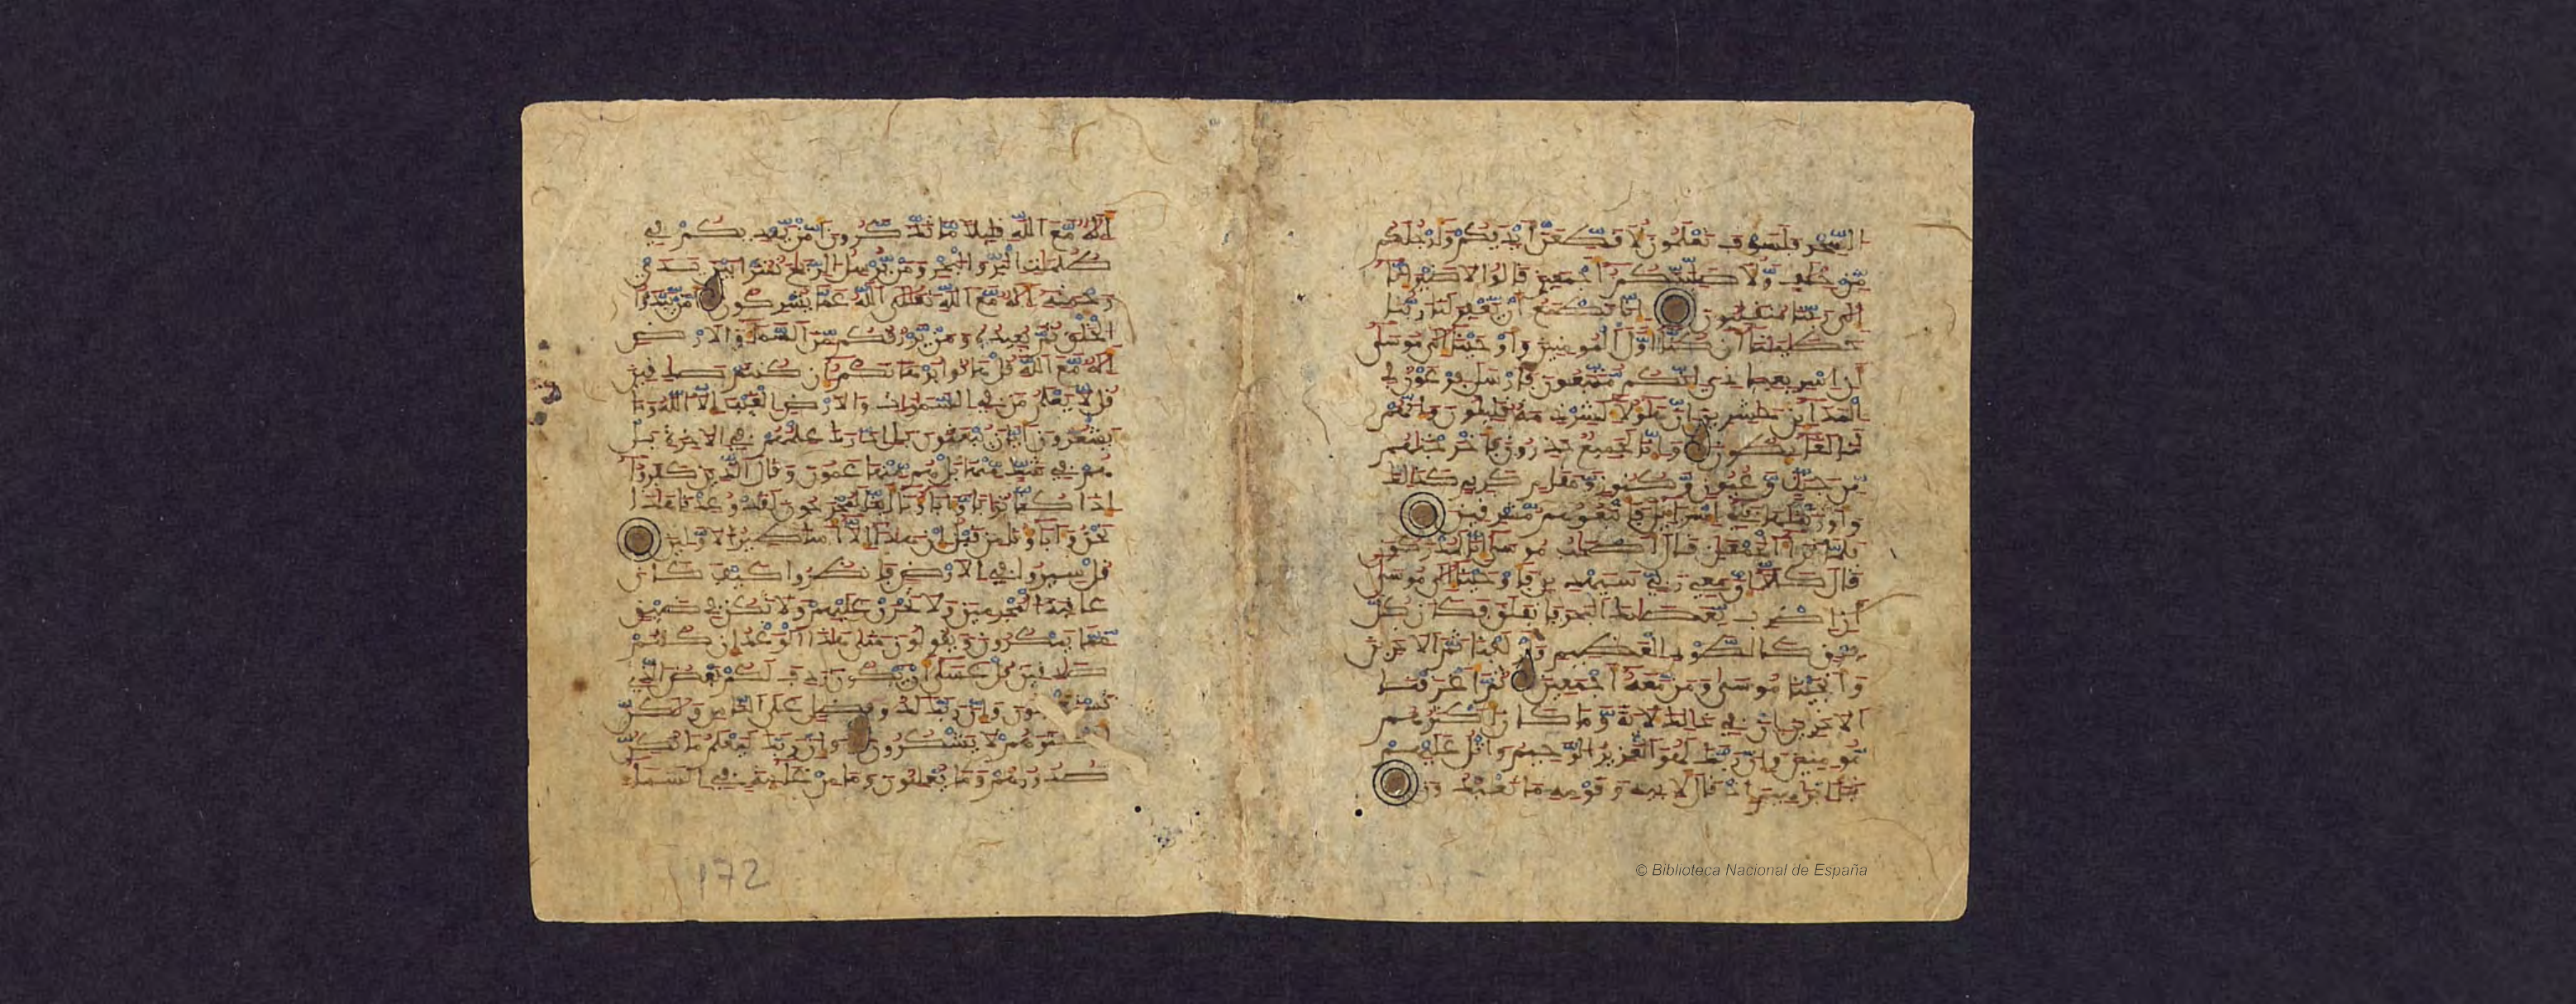 السحر فلسوف تعلمون لأقطعن أيديكم وأرجلكم
من خلف ولأصلبنكم أجمعين قالوا لا ضير إنا
إلى ربنا منقلبون إنا نطمع أن يغفر لنا ربنا
خطينا أن كنا أول المومنين وأوحينا إلى موسى
أن اسر بعبادي إنكم متبعون فأرسل فرعون في
المدائن حشرين إن هؤلاء لشرذمة قليلون وإنهم
لنا لغائظون وإنا لجميع حذرون فأخرجنهم
من جنت وعيون وكنوز ومقام كريم كذلك
وأورثنها بني إسرائيل فأتبعوهم مشرقين
فلما ترءا الجمعن قال أصحب موسى إنا لمدركون
قال كلا إن معي ربي سيهدين فأوحينا إلى موسى
أن اضرب بعصاك البحر فانفلق فكان كل
فرق كالطود العظيم وأزلفنا ثم الاخرين
وأنجينا موسى ومن معه أجمعين ثم أغرقنا
الاخرين إن في ذلك لاية وما كان أكثرهم
مومنين وإن ربك لهو العزيز الرحيم واتل عليهم
نبأ إبرهيم إذ قال لأبيه وقومه ما تعبدون
أله مع الله قليلا ما تذكرون أمن يهديكم في
ظلمت البر والبحر ومن يرسل الريح نشرا بين يدي
رحمته أله مع الله تعلى الله عما يشركون أمن يبدؤا
الخلق ثم يعيده ومن يرزقكم من السماء والارض
أله مع الله قل هاتوا برهنكم إن كنتم صدقين
قل لا يعلم من في السموت والارض الغيب إلا الله وما
يشعرون أيان يبعثون بل ادارك علمهم في الاخرة بل
هم في شك منها بل هم منها عمون وقال الذين كفروا
إذا كنا ترابا وءاباؤنا أينا لمخرجون لقد وعدنا هذا
نحن وءاباؤنا من قبل إن هذا إلا أسطير الاولين
قل سيروا في الارض فانظروا كيف كان
عاقبة المجرمين ولا تحزن عليهم ولا تكن في ضيق
مما يمكرون ويقولون متى هذا الوعد إن كنتم
صدقين قل عسى أن يكون ردف لكم بعض الذي
تستعجلون وإن ربك لذو فضل على الناس ولكن
أكثرهم لا يشكرون وإن ربك ليعلم ما تكن
صدورهم وما يعلنون وما من غائبة في السماء
172
© Biblioteca Nacional de España